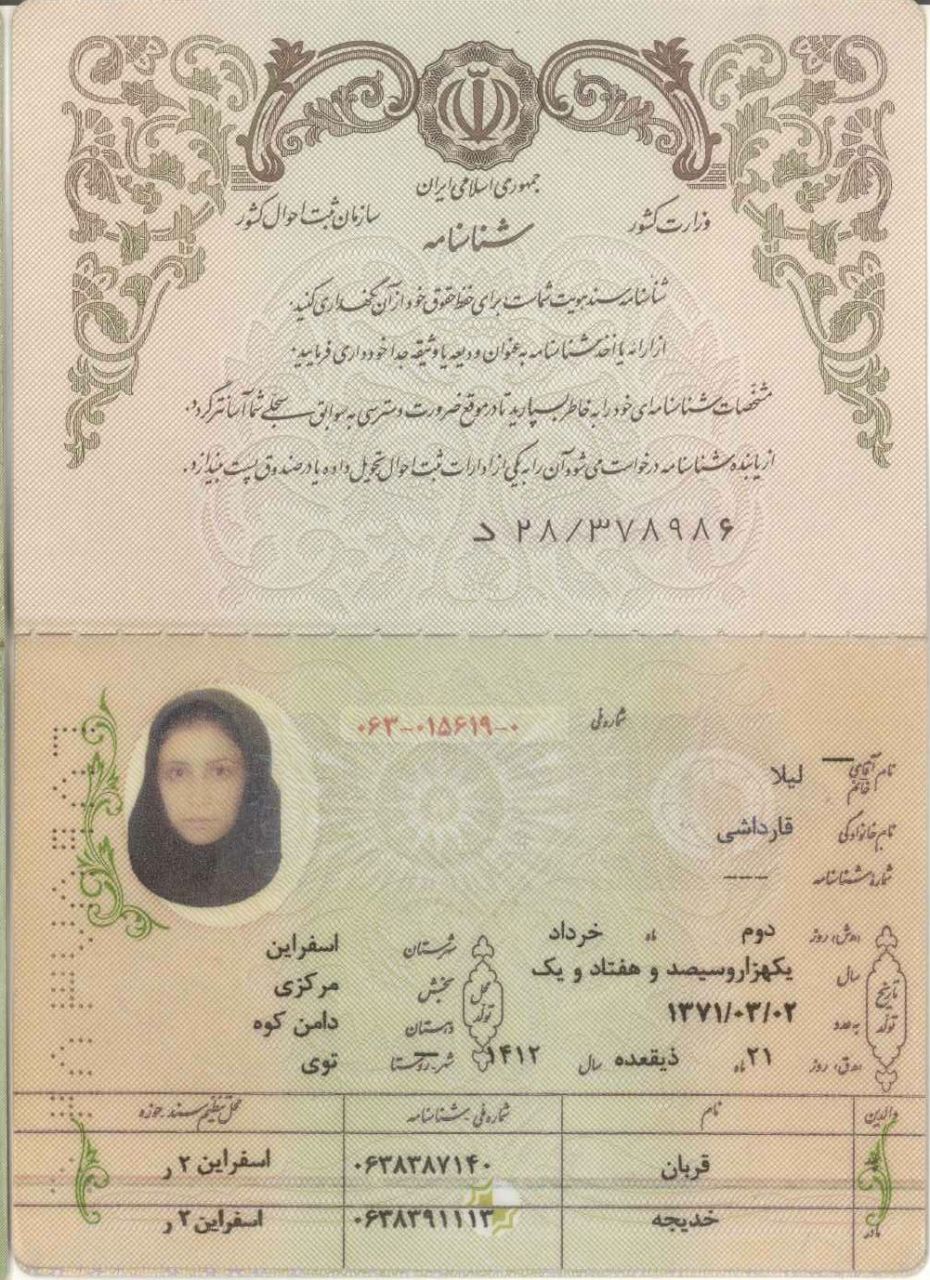 جمهوری اسلامی ایران
وزارت کشور
سازمان ثبت احوال کشور
شناسنامه
شناسنامه سند هویت شماست برای حفظ حقوق خود از آن نگهداری کنید.
از ارائه یا اخذ شناسنامه به عنوان ودیعه یا وثیقه جداً خودداری فرمایید.
مشخصات شناسنامه‌ای خود را به خاطر بسپارید تا در موقع ضرورت دسترسی به سوابق سجلی شما آسانتر گردد.
از یابنده شناسنامه درخواست می‌شود آن را به یکی از ادارات ثبت احوال تحویل داده یا در صندوق پست بیندازد.
د ۲۸/۳۷۸۹۸۶
شماره ملی ۰۶۳-۰۱۵۶۱۹-۰
نام آقای خانم لیلا
نام خانوادگی قارداشی
شماره شناسنامه ----
تاریخ تولد
(ه‍.ش) روز دوم ماه خرداد
سال یکهزاروسیصد و هفتاد و یک
به عدد ۱۳۷۱/۰۳/۰۲
(ه‍.ق) روز ۲۱ ماه ذیقعده سال ۱۴۱۲
محل تولد
شهرستان اسفراین
بخش مرکزی
دهستان دامن کوه
شهر-روستا توی
والدین نام شماره ملی-شناسنامه محل تنظیم سند-حوزه
پدر قربان ۰۶۳۸۳۸۷۱۴۰ اسفراین ۲ ر
مادر خدیجه ۰۶۳۸۳۹۱۱۱۳ اسفراین ۲ ر